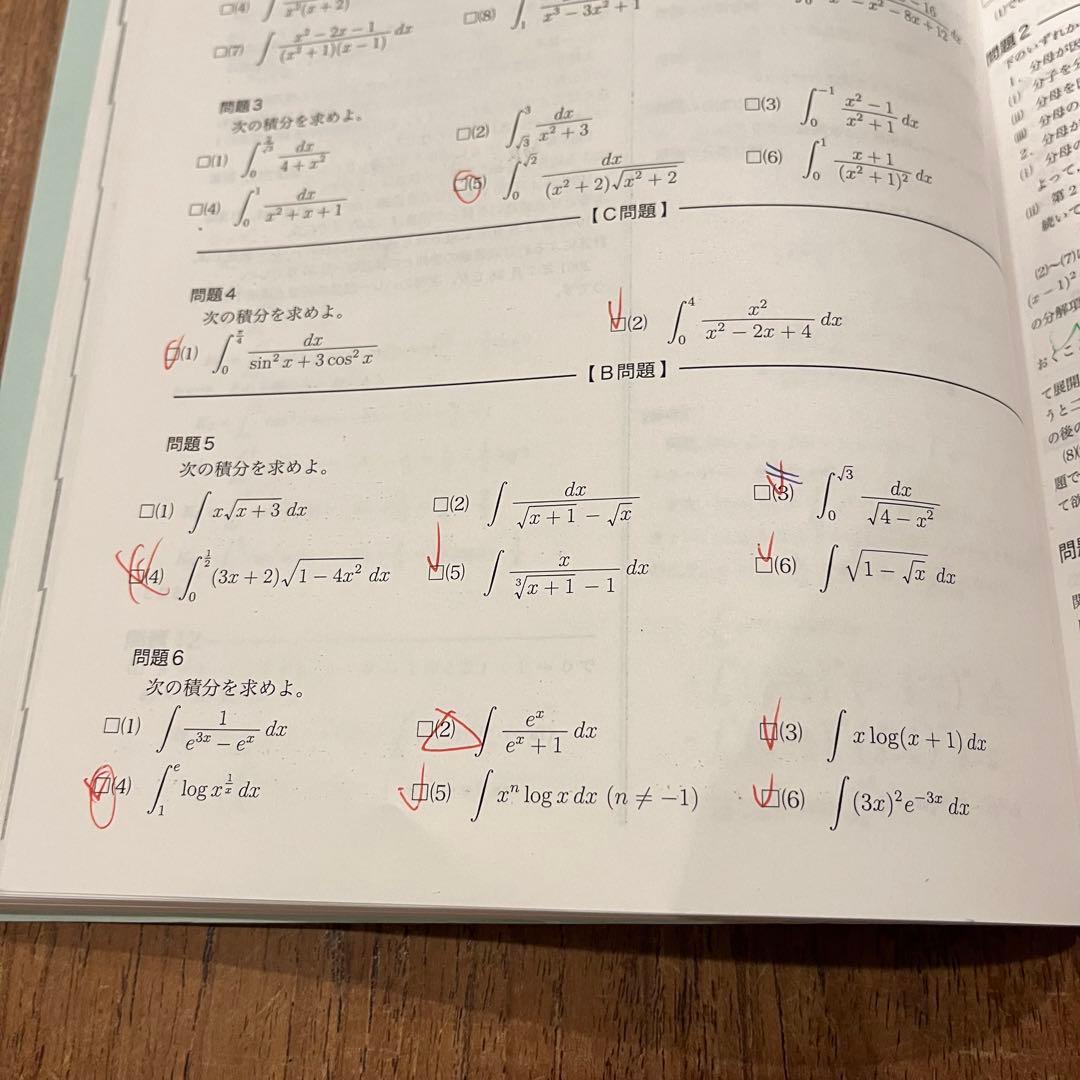 □(4) ∫ x³(x + 2)
□(8) ∫₁ x³ − 3x² + 1
−16
x² − 8x + 12 dx
□(7) ∫ (x² − 2x − 1)/((x² + 1)(x − 1)) dx
問題3
次の積分を求めよ。
□(1) ∫₀ dx/(4 + x²)
□(2) ∫_√3^3 dx/(x² + 3)
□(3) ∫₀^−1 (x² − 1)/(x² + 1) dx
□(4) ∫₀^1 dx/(x² + x + 1)
□(5) ∫₀^√2 dx/((x² + 2)√(x² + 2))
□(6) ∫₀^1 (x + 1)/(x² + 1)² dx
【C問題】
問題4
次の積分を求めよ。
□(1) ∫₀^(π/4) dx/(sin² x + 3 cos² x)
□(2) ∫₀^4 x²/(x² − 2x + 4) dx
【B問題】
問題5
次の積分を求めよ。
□(1) ∫ x√(x + 3) dx
□(2) ∫ dx/(√(x + 1) − √x)
□(3) ∫₀^√3 dx/√(4 − x²)
□(4) ∫₀^(1/2) (3x + 2)√(1 − 4x²) dx
□(5) ∫ x/(∛(x + 1) − 1) dx
□(6) ∫ √(1 − √x) dx
問題6
次の積分を求めよ。
□(1) ∫ 1/(e^(3x) − e^x) dx
□(2) ∫ e^x/(e^x + 1) dx
□(3) ∫ x log(x + 1) dx
□(4) ∫₁^e log x^(1/x) dx
□(5) ∫ xⁿ log x dx (n ≠ −1)
□(6) ∫ (3x)² e^(−3x) dx
問題2
下のいずれか
1. 分母が因
(i) 分子を分
(ii) 分母を
(iii) 分母の
2. 分母が
(i) 分母の
よって,
(ii) 第2
続いて
(2)〜(7)
(x − 1)²
の分解項
おくこ
て展開
うと二
の後の
(8)
題で
て欲
問